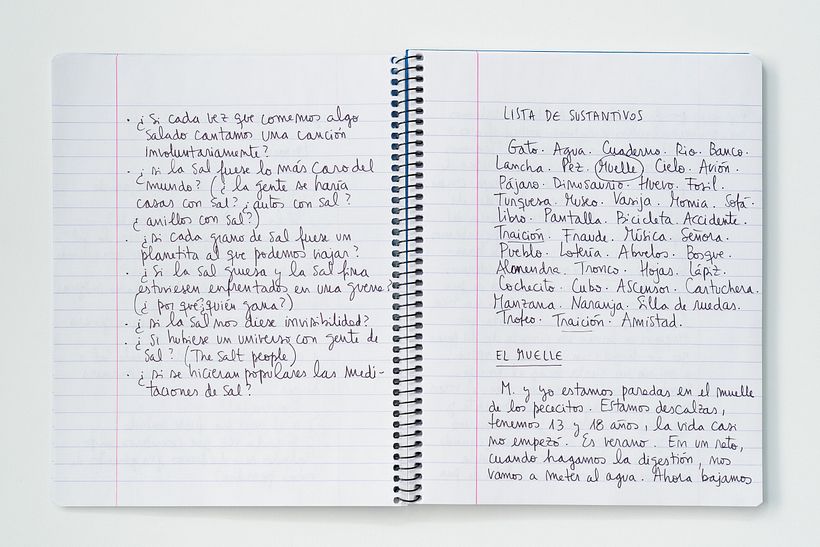 · ¿Si cada vez que comemos algo
salado cantamos una canción
involuntariamente?
· ¿Si la sal fuese lo más caro del
mundo? (¿la gente se haría
casas con sal? ¿autos con sal?
¿anillos con sal?)
· ¿Si cada grano de sal fuese un
planetita al que podemos viajar?
· ¿Si la sal gruesa y la sal fina
estuviesen enfrentados en una guerra?
(¿por qué; quién gana?)
· ¿Si la sal nos diese invisibilidad?
· ¿Si hubiese un universo con gente de
sal? (The salt people)
· ¿Si se hicieran populares las medi-
taciones de sal?
LISTA DE SUSTANTIVOS
Gato. Agua. Cuaderno. Rio. Banco.
Lancha. Pez. Muelle Cielo. Avión.
Pájaro. Dinosaurio. Huevo. Fosil.
Turquesa. Museo. Vasija. Momia. Sofá.
Libro. Pantalla. Bicicleta. Accidente.
Traición. Fraude. Música. Señora.
Pueblo. Lotería. Abuelos. Bosque.
Almendra. Tronco. Hojas. Lápiz.
Cochecito. Cubo. Ascensor. Cartuchera.
Manzana. Naranja. Silla de ruedas.
Trofeo. Traición. Amistad.
EL MUELLE
M. y yo estamos paradas en el muelle
de los pececitos. Estamos descalzas,
tenemos 13 y 18 años, la vida casi
no empezó. Es verano. En un rato,
cuando hagamos la digestión, nos
vamos a meter al agua. Ahora bajamos